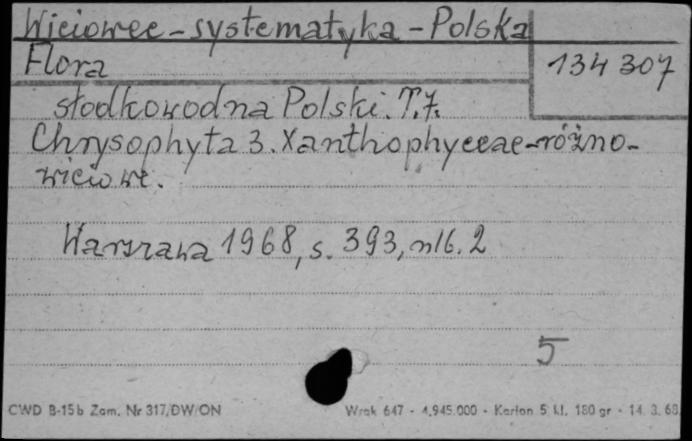 Wiciowce - systematyka - Polska
Flora
134 307
słodkowodna Polski. T.7.
Chrysophyta 3. Xanthophyceae - różno-
wiciowe.
Warszawa 1968, s. 393, nlb. 2
5
CWD B-15b Zam. Nr 317/DW/ON
Wrak 647 - 4.945.000 - Karton 5 kl. 180 gr - 14. 3. 68